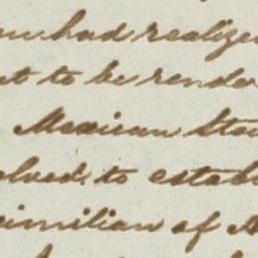 had realize
to be rende
Mexican Sta
olved to estab
ximilian of